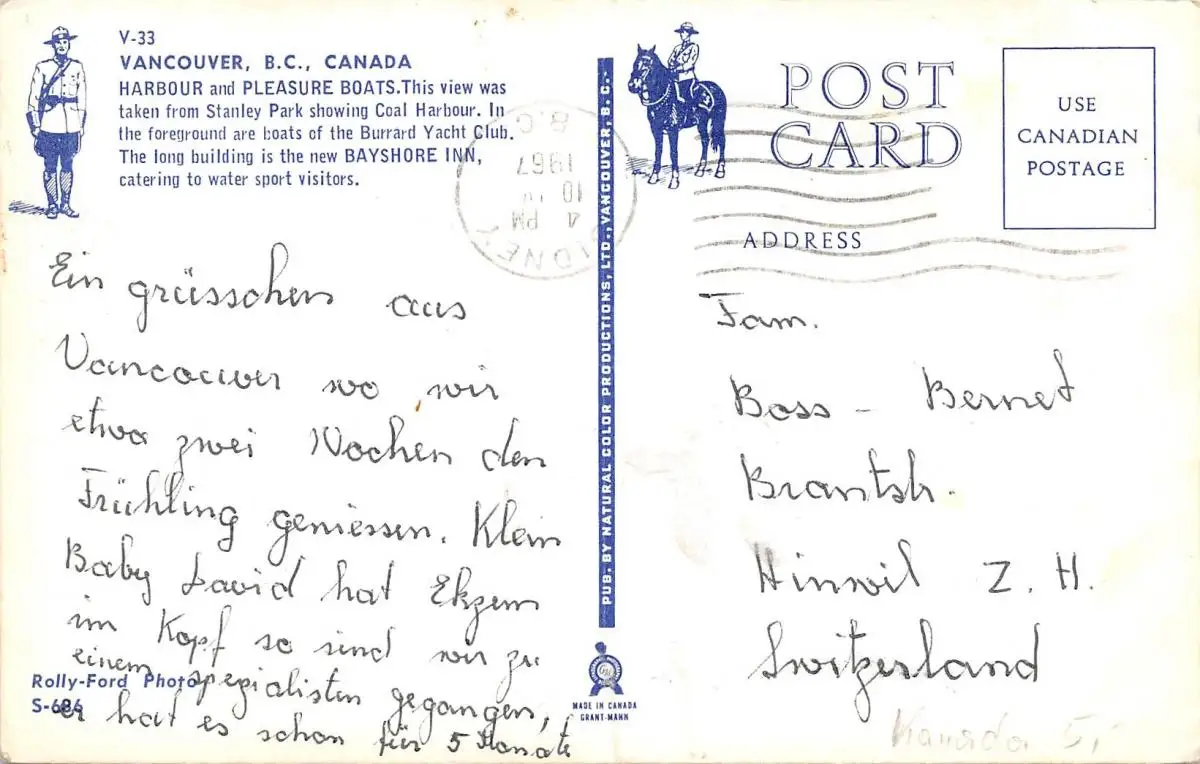 V-33
VANCOUVER, B.C., CANADA
HARBOUR and PLEASURE BOATS. This view was
taken from Stanley Park showing Coal Harbour. In
the foreground are boats of the Burrard Yacht Club.
The long building is the new BAYSHORE INN,
catering to water sport visitors.
Ein grüsschen aus
Vancouver wo wir
etwa zwei Wochen den
Frühling geniessen. Klein
Baby David hat Ekzem
im Kopf so sind wir zu
einem spezialisten gegangen,
er hat es schon für 5 Monate
Rolly-Ford Photo
S-686
PUB. BY NATURAL COLOR PRODUCTIONS, LTD., VANCOUVER, B.C.
MADE IN CANADA
GRANT-MANN
POST
CARD
USE
CANADIAN
POSTAGE
ADDRESS
SIDNEY
4 PM
10
1967
B.C.
Fam.
Boss - Bernet
Hinwil Z. H.
Switzerland
Kanada